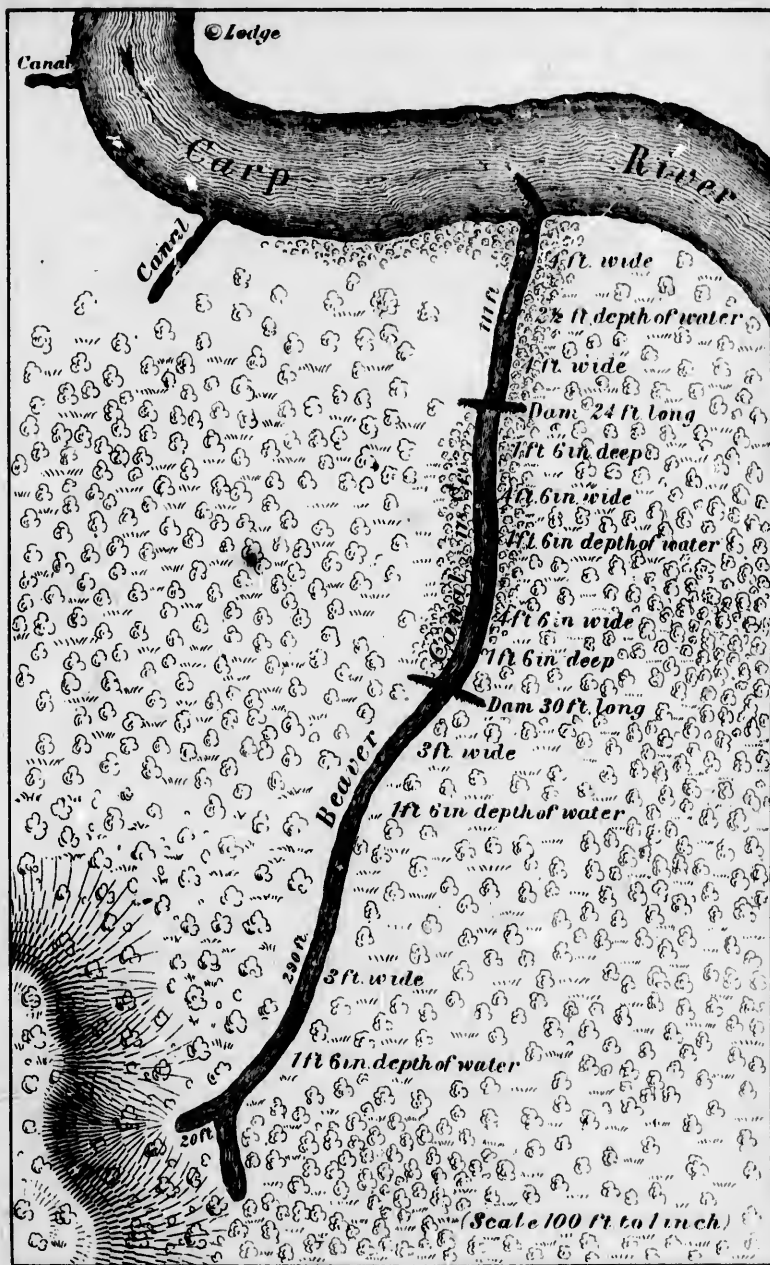 Lodge
Canal
Carp River
Canal
4 ft. wide
111 ft
2½ ft depth of water
4 ft. wide
Dam 24 ft long
1 ft 6 in deep
4 ft 6 in wide
1 ft 6 in depth of water
Beaver Canal
4 ft 6 in wide
1 ft 6 in deep
Dam 30 ft long
3 ft. wide
1 ft 6 in depth of water
290 ft.
3 ft. wide
1 ft 6 in depth of water
20 ft
(Scale 100 ft to 1 inch)